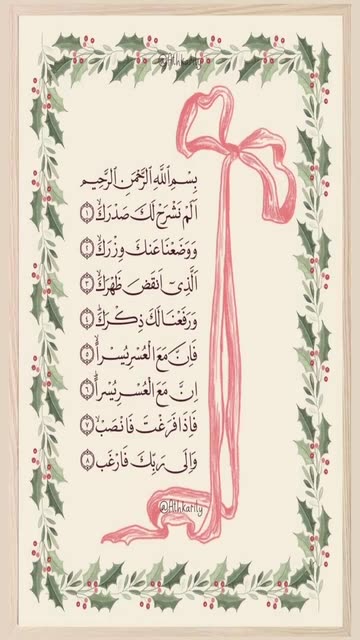 @Athkarily
بِسْمِ اللَّهِ الرَّحْمَنِ الرَّحِيمِ
اَلَمْ نَشْرَحْ لَكَ صَدْرَكَۙ ﴿١﴾
وَوَضَعْنَا عَنْكَ وِزْرَكَۙ ﴿٢﴾
اَلَّذِٓي اَنْقَضَ ظَهْرَكَۙ ﴿٣﴾
وَرَفَعْنَا لَكَ ذِكْرَكَۜ ﴿٤﴾
فَاِنَّ مَعَ الْعُسْرِ يُسْراًۙ ﴿٥﴾
اِنَّ مَعَ الْعُسْرِ يُسْراًۜ ﴿٦﴾
فَاِذَا فَرَغْتَ فَانْصَبْۙ ﴿٧﴾
وَاِلٰى رَبِّكَ فَارْغَبْ ﴿٨﴾
@Athkarily